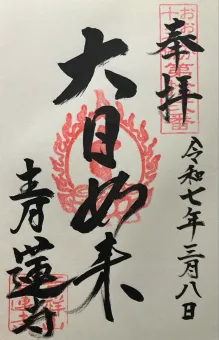 奉拝
令和七年三月八日
大日如来
青蓮寺